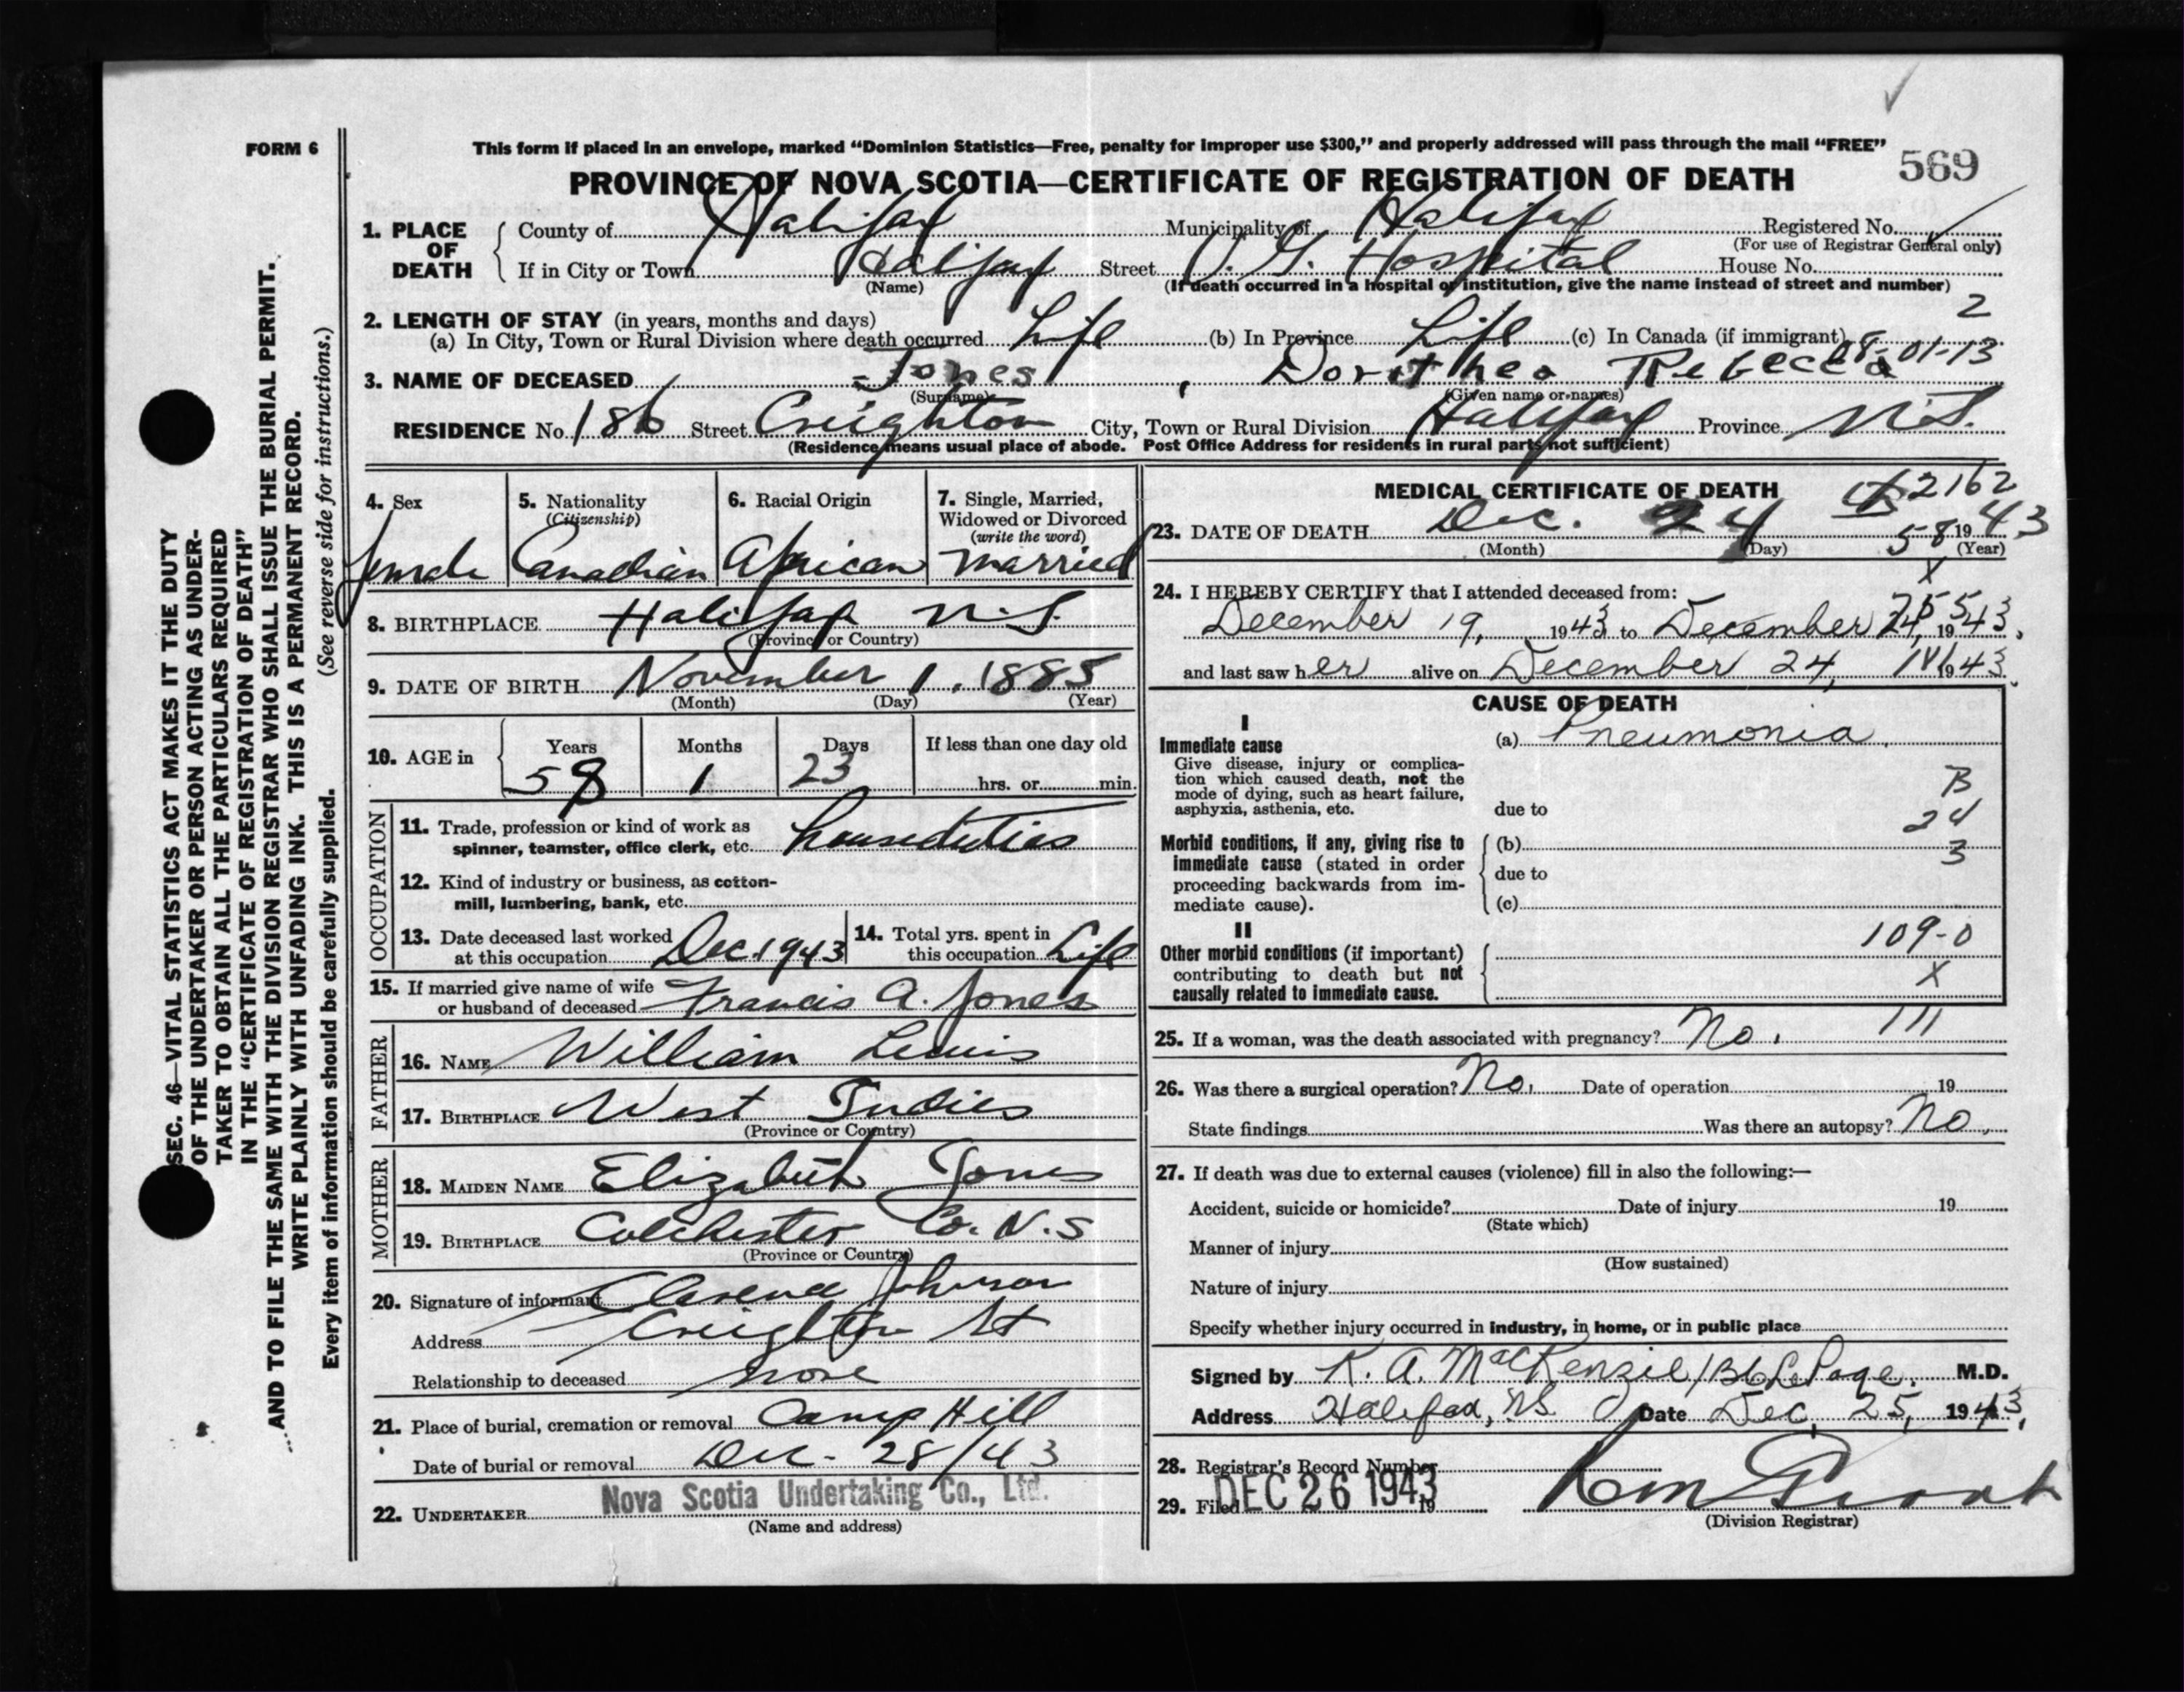 FORM 6
This form if placed in an envelope, marked "Dominion Statistics—Free, penalty for improper use $300," and properly addressed will pass through the mail "FREE"
569
PROVINCE OF NOVA SCOTIA—CERTIFICATE OF REGISTRATION OF DEATH
1. PLACE OF DEATH
County of Halifax Municipality of Halifax Registered No.
(For use of Registrar General only)
If in City or Town Halifax Street V. G. Hospital House No.
(Name) (If death occurred in a hospital or institution, give the name instead of street and number)
2
2. LENGTH OF STAY (in years, months and days)
(a) In City, Town or Rural Division where death occurred Life (b) In Province Life (c) In Canada (if immigrant)
08-01-13
3. NAME OF DECEASED Jones, Dorothea Rebecca
(Surname) (Given name or names)
RESIDENCE No. 186 Street Creighton City, Town or Rural Division Halifax Province N.S.
(Residence means usual place of abode. Post Office Address for residents in rural parts not sufficient)
4. Sex
female
5. Nationality
(Citizenship)
Canadian
6. Racial Origin
African
7. Single, Married,
Widowed or Divorced
(write the word)
Married
8. BIRTHPLACE Halifax N.S.
(Province or Country)
9. DATE OF BIRTH November 1, 1885
(Month) (Day) (Year)
10. AGE in
Years Months Days If less than one day old
58 1 23 hrs. or min.
OCCUPATION
11. Trade, profession or kind of work as
spinner, teamster, office clerk, etc. houseduties
12. Kind of industry or business, as cotton-
mill, lumbering, bank, etc.
13. Date deceased last worked
at this occupation Dec. 1943
14. Total yrs. spent in
this occupation Life
15. If married give name of wife
or husband of deceased Francis A. Jones
FATHER
16. NAME William Lewis
17. BIRTHPLACE West Indies
(Province or Country)
MOTHER
18. MAIDEN NAME Elizabeth Jones
19. BIRTHPLACE Colchester Co. N.S
(Province or Country)
20. Signature of informant Johnson
Address Creighton St
Relationship to deceased none
21. Place of burial, cremation or removal Camp Hill
Date of burial or removal Dec. 28/43
22. UNDERTAKER Nova Scotia Undertaking Co., Ltd.
(Name and address)
MEDICAL CERTIFICATE OF DEATH
2162
23. DATE OF DEATH Dec. 24 1943
(Month) (Day) (Year)
58
X
24. I HEREBY CERTIFY that I attended deceased from:
December 19, 1943 to December 24, 1943.
and last saw her alive on December 24, 1943.
CAUSE OF DEATH
I
Immediate cause
Give disease, injury or complica-
tion which caused death, not the
mode of dying, such as heart failure,
asphyxia, asthenia, etc.
(a) Pneumonia.
B
due to
24
Morbid conditions, if any, giving rise to
immediate cause (stated in order
proceeding backwards from im-
mediate cause).
(b)
3
due to
(c)
II
109-0
Other morbid conditions (if important)
contributing to death but not
causally related to immediate cause.
X
25. If a woman, was the death associated with pregnancy? No. 111
26. Was there a surgical operation? No. Date of operation 19
State findings Was there an autopsy? No.
27. If death was due to external causes (violence) fill in also the following:—
Accident, suicide or homicide? Date of injury 19
(State which)
Manner of injury
(How sustained)
Nature of injury
Specify whether injury occurred in industry, in home, or in public place
Signed by K. A. MacKenzie / LePage. M.D.
Address Halifax, NS Date Dec. 25, 1943.
28. Registrar's Record Number
29. Filed DEC 26 1943 19
(Division Registrar)
SEC. 46—VITAL STATISTICS ACT MAKES IT THE DUTY
OF THE UNDERTAKER OR PERSON ACTING AS UNDER-
TAKER TO OBTAIN ALL THE PARTICULARS REQUIRED
IN THE "CERTIFICATE OF REGISTRATION OF DEATH"
AND TO FILE THE SAME WITH THE DIVISION REGISTRAR WHO SHALL ISSUE THE BURIAL PERMIT.
WRITE PLAINLY WITH UNFADING INK. THIS IS A PERMANENT RECORD.
Every item of information should be carefully supplied. (See reverse side for instructions.)